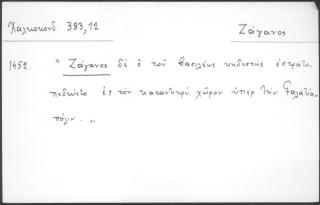 Χαλκοκονδ. 383,12
Ζάγανος
1452. " Ζάγανος δὲ ὁ τοῦ βασιλέως κηδεστὴς ἐστρατο-
πεδεύετο ἐς τὸν καταντικρὺ χῶρον ὑπὲρ τὴν Γαλατίαν
πόλιν. "